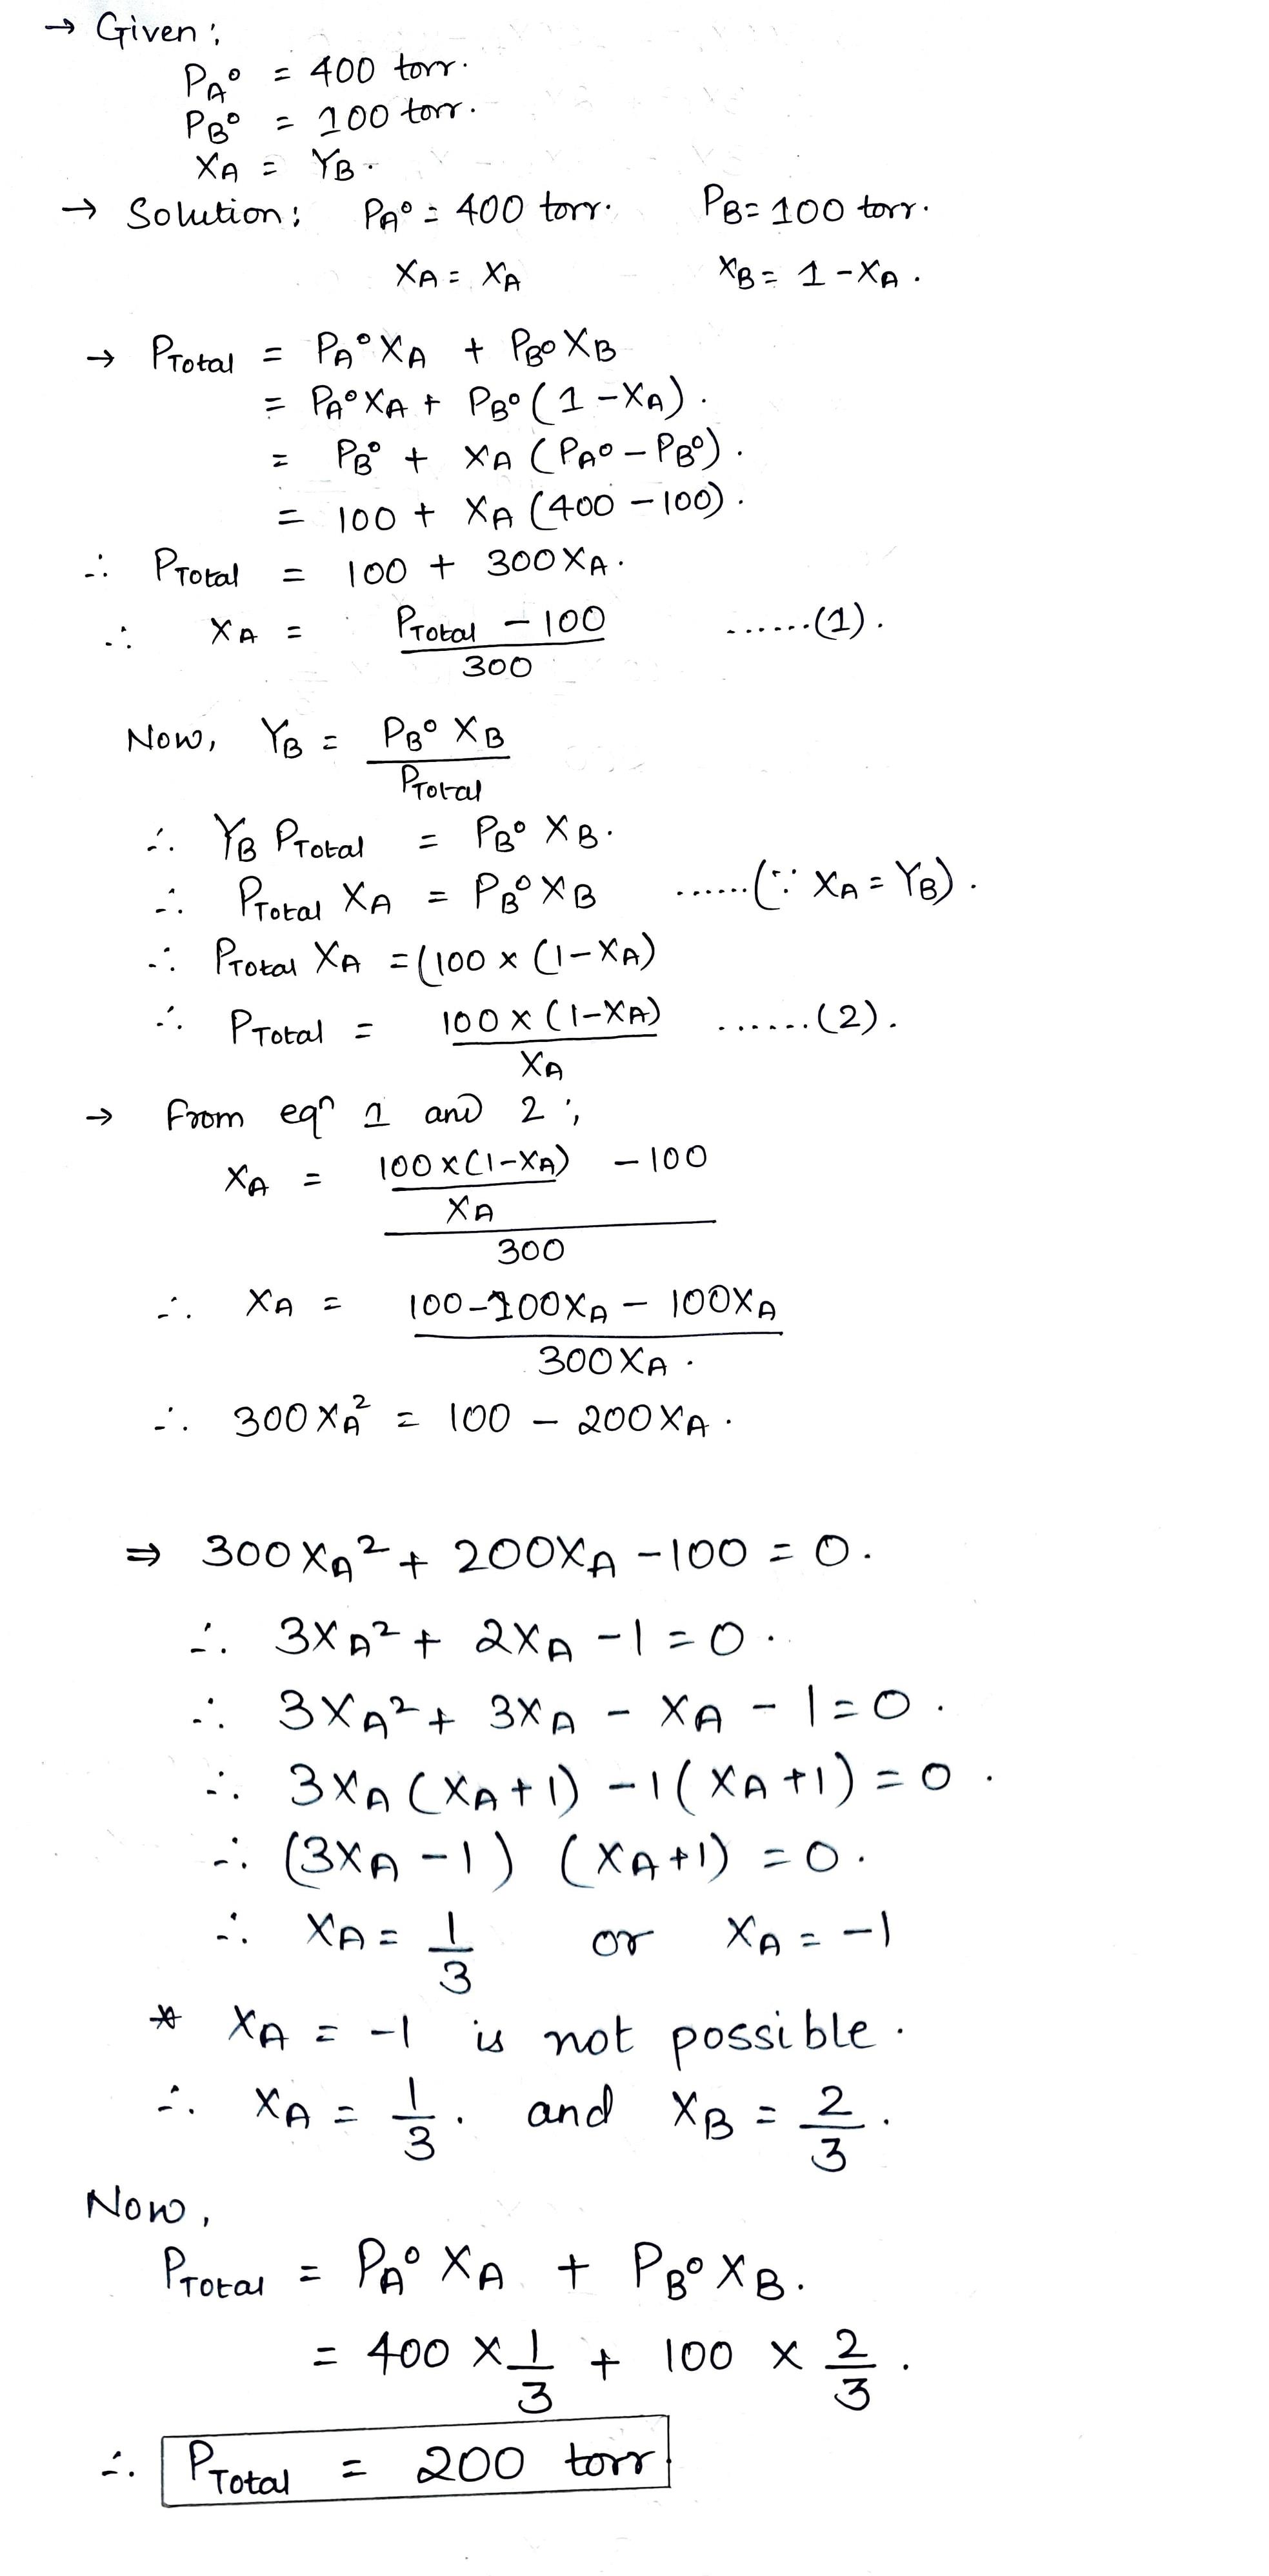 → Given:
PA° = 400 torr.
PB° = 100 torr.
XA = YB.
→ Solution: PA° = 400 torr. PB = 100 torr.
XA = XA XB = 1 - XA.
→ PTotal = PA° XA + PB° XB
= PA° XA + PB° (1 - XA).
= PB° + XA (PA° - PB°).
= 100 + XA (400 - 100).
∴ PTotal = 100 + 300XA.
∴ XA = PTotal - 100 ......(1).
300
Now, YB = PB° XB
PTotal
∴ YB PTotal = PB° XB.
∴ PTotal XA = PB° XB ......(∵ XA = YB).
∴ PTotal XA = (100 × (1-XA)
∴ PTotal = 100 × (1-XA) ......(2).
XA
→ From eqⁿ 1 and 2;
XA = 100×(1-XA) - 100
XA
300
∴ XA = 100-100XA - 100XA
300XA.
∴ 300XA² = 100 - 200XA.
⇒ 300XA² + 200XA - 100 = 0.
∴ 3XA² + 2XA - 1 = 0.
∴ 3XA² + 3XA - XA - 1 = 0.
∴ 3XA (XA+1) - 1(XA+1) = 0.
∴ (3XA - 1) (XA+1) = 0.
∴ XA = 1 or XA = -1
3
* XA = -1 is not possible.
∴ XA = 1/3. and XB = 2/3.
Now,
PTotal = PA° XA + PB° XB.
= 400 × 1/3 + 100 × 2/3.
∴ PTotal = 200 torr